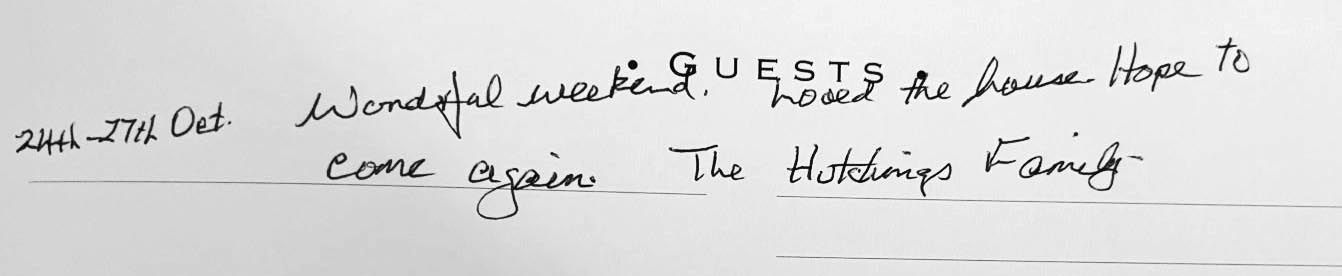 • GUESTS •
24th-27th Oct. Wonderful weekend. Loved the house. Hope to
come again. The Hutchings Family